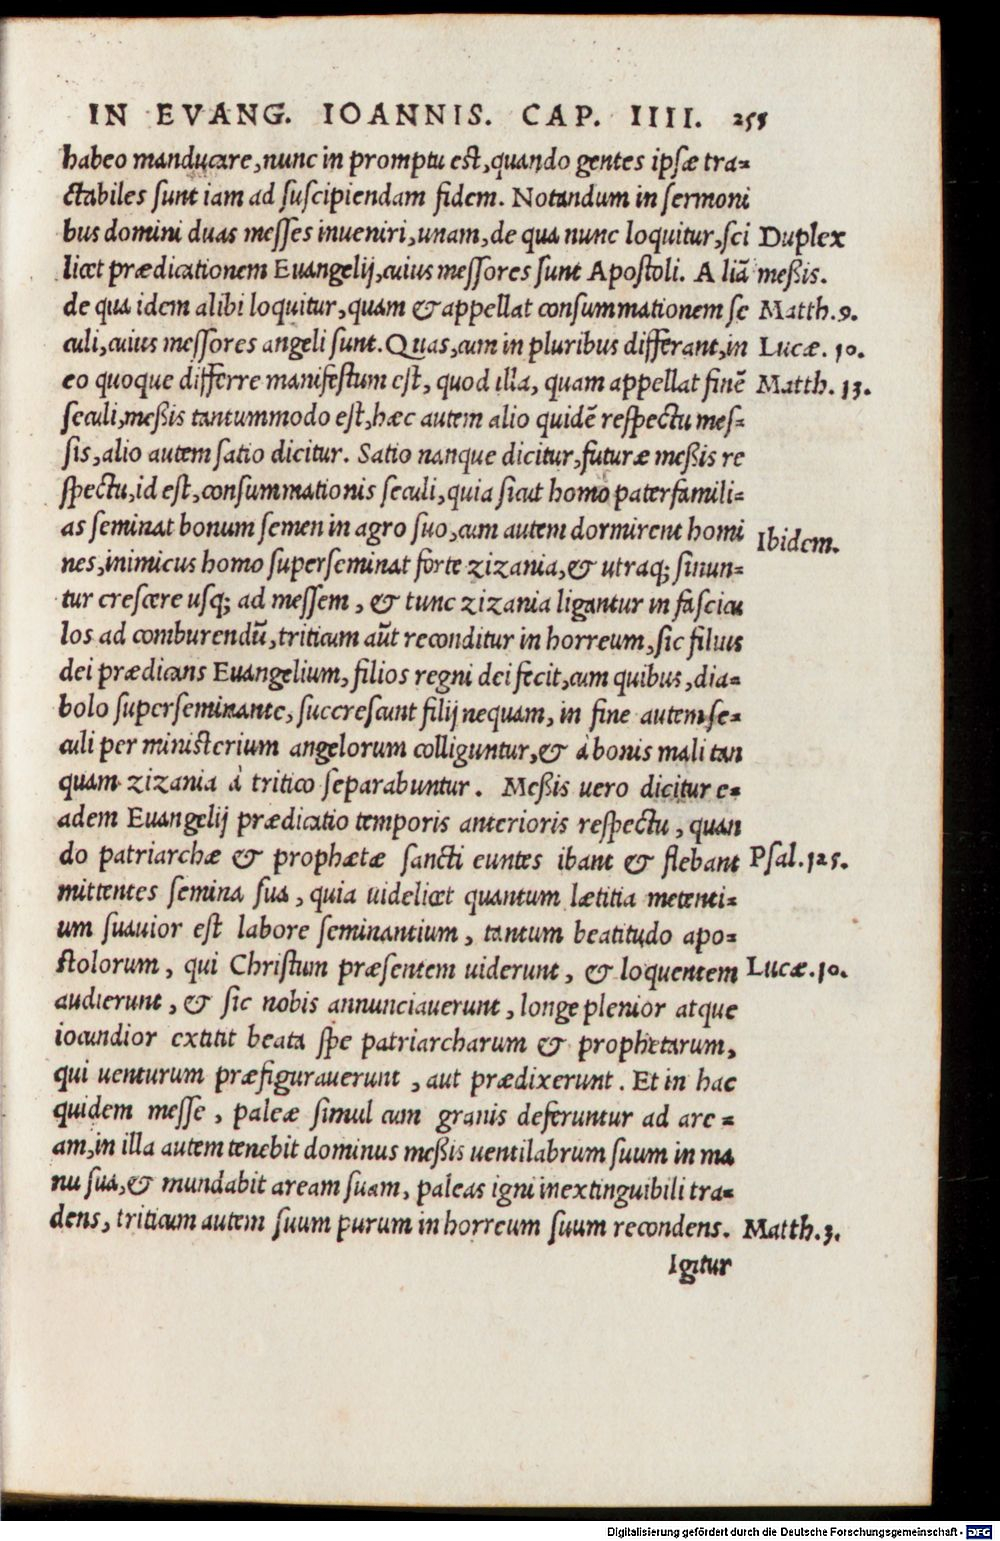 IN EVANG. IOANNIS. CAP. IIII. 255
habeo manducare, nunc in promptu est, quando gentes ipsæ tra-
ctabiles sunt iam ad suscipiendam fidem. Notandum in sermoni
bus domini duas messes inueniri, unam, de qua nunc loquitur, sci Duplex
licet prædicationem Euangelij, cuius messores sunt Apostoli. A liā meßis.
de qua idem alibi loquitur, quam & appellat consummationem se Matth.9.
culi, cuius messores angeli sunt. Quas, cum in pluribus differant, in Lucæ. 10.
eo quoque differre manifestum est, quod illa, quam appellat finē Matth. 13.
seculi, meßis tantummodo est, hæc autem alio quidē respectu mes-
sis, alio autem satio dicitur. Satio nanque dicitur, futuræ meßis re
spectu, id est, consummationis seculi, quia sicut homo paterfamili-
as seminat bonum semen in agro suo, cum autem dormirent homi
Ibidem.
nes, inimicus homo superseminat forte zizania, & utraq; sinun-
tur crescere usq; ad messem, & tunc zizania ligantur in fascicu
los ad comburendū, triticum aūt reconditur in horreum, sic filius
dei prædicans Euangelium, filios regni dei fecit, cum quibus, dia-
bolo superseminante, succrescunt filij nequam, in fine autem se-
culi per ministerium angelorum colliguntur, & à bonis mali tan
quam zizania à tritico separabuntur. Meßis uero dicitur e-
adem Euangelij prædicatio temporis anterioris respectu, quan
do patriarchæ & prophætæ sancti euntes ibant & flebant Psal.125.
mittentes semina sua, quia uidelicet quantum lætitia metenti-
um suauior est labore seminantium, tantum beatitudo apo-
stolorum, qui Christum præsentem uiderunt, & loquentem Lucæ.10.
audierunt, & sic nobis annunciauerunt, longe plenior atque
iocundior extitit beata spe patriarcharum & prophetarum,
qui uenturum præfigurauerunt, aut prædixerunt. Et in hac
quidem messe, paleæ simul cum granis deferuntur ad are-
am, in illa autem tenebit dominus meßis uentilabrum suum in ma
nu sua, & mundabit aream suam, paleas igni inextinguibili tra-
dens, triticum autem suum purum in horreum suum recondens. Matth.3.
Igitur
Digitalisierung gefördert durch die Deutsche Forschungsgemeinschaft - DFG